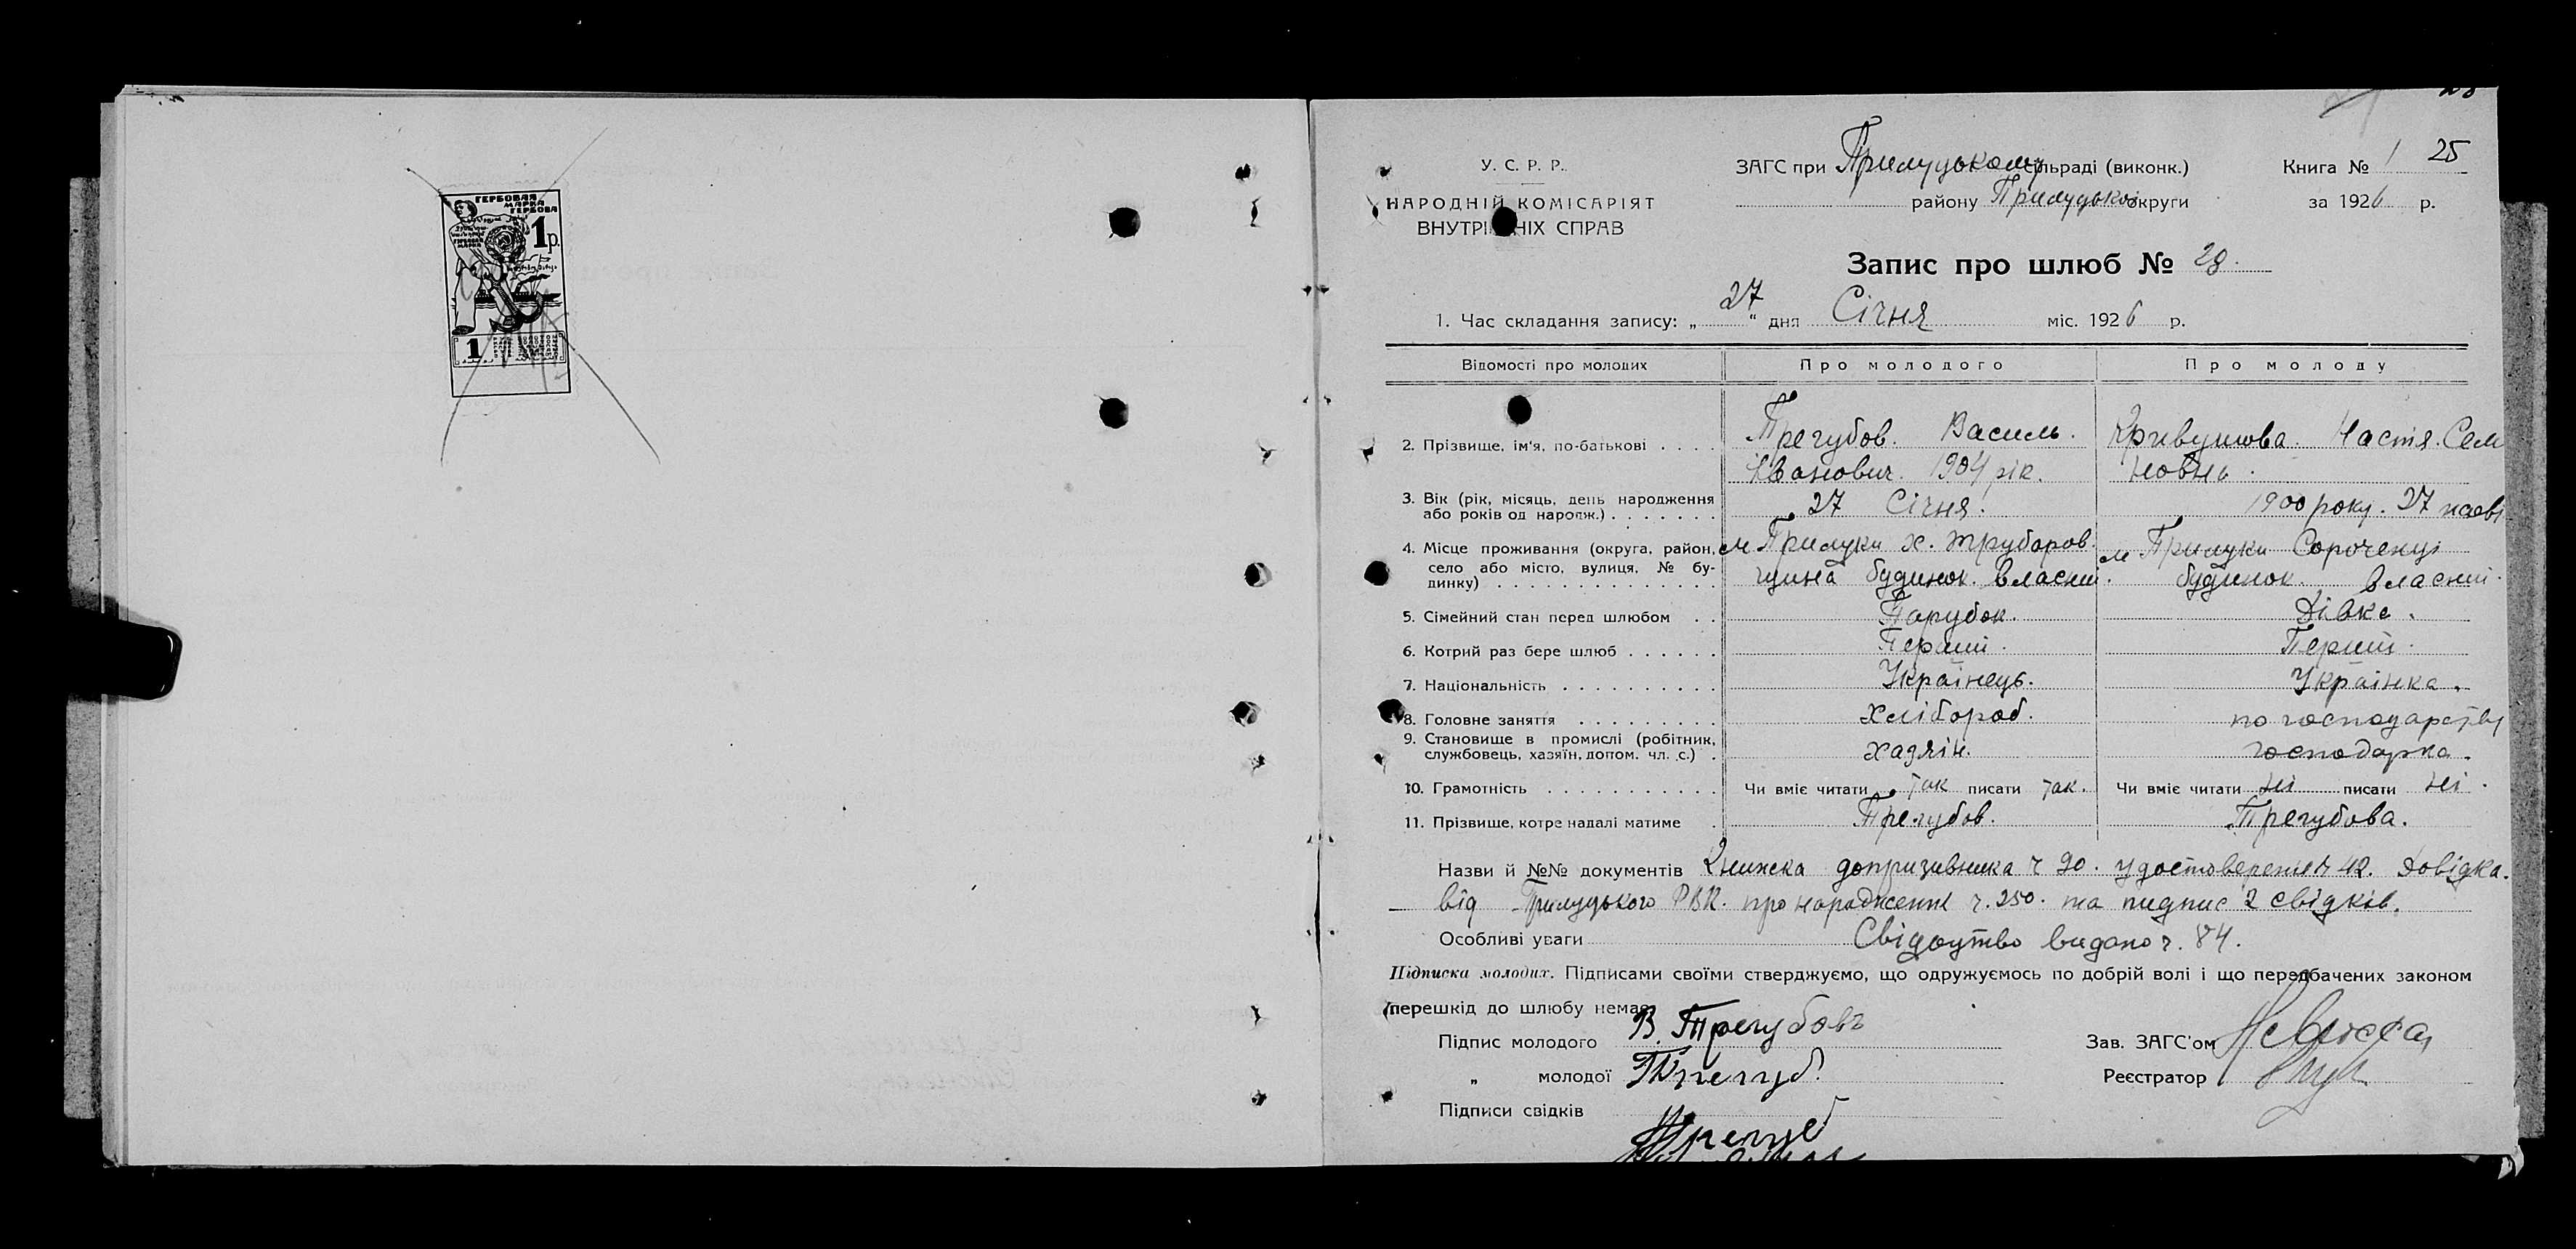 ГЕРБОВАЯ
МАРКА
ГЕРБОВА
1 р.
1
25
У. С. Р. Р.
НАРОДНІЙ КОМІСАРІЯТ
ВНУТРІШНІХ СПРАВ
ЗАГС при Прилуцькому сільраді (виконк.)
району Прилуцької округи
Книга № 1
за 1926 р.
Запис про шлюб № 28.
1. Час складання запису: „27“ дня Січня міс. 1926 р.
Відомості про молодих Про молодого Про молоду
2. Прізвище, ім'я, по-батькові . . . . Трегубов. Василь. Кривушова. Настя. Сем
Іванович. 1904 рік. новна.
3. Вік (рік, місяць, день народження
або років од народж.) . . . . . . . 27 Січня. 1900 року. 27
4. Місце проживання (округа, район, м Прилуки х. Трубаров м Прилуки Сороченці
село або місто, вулиця, № бу-
динку) . . . . . . . . . . . . . . щина будинок. власний. будинок власний.
5. Сімейний стан перед шлюбом . . Парубок. Дівка.
6. Котрий раз бере шлюб . . . . . . Перший. Перший.
7. Національність . . . . . . . . . . Українець. Українка.
8. Головне заняття . . . . . . . . . хлібороб. по господарству
9. Становище в промислі (робітник,
службовець, хазяїн, допом. чл. с.) . хазяїн. господарка.
10. Грамотність . . . . . . . . . . . Чи вміє читати так писати так. Чи вміє читати ні писати ні.
11. Прізвище, котре надалі матиме . Трегубов. Трегубова.
Назви й №№ документів Книжка допризивника ч 90. удостоверение ч 42. Довідка.
від Прилуцького РВК. про народження ч. 250. та пидпис 2 свідків.
Особливі уваги Свідоцтво видано ч. 84.
Підписка молодих. Підписами своїми стверджуємо, що одружуємось по добрій волі і що передбачених законом
перешкід до шлюбу немає.
Підпис молодого В. Трегубовъ
Зав. ЗАГС'ом
„ молодої
Реєстратор
Підписи свідків